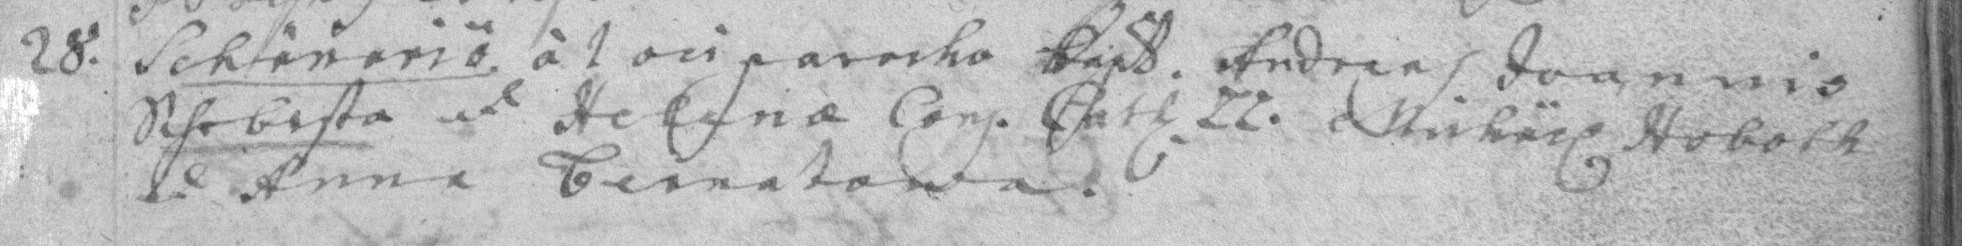 28. Schönaviō. à 1 oci parocho bapt. Andreas Joannis
Schebesta et Helenæ Conj. Path. LL. Michäel Hoboth
et Anna Bernatowa.